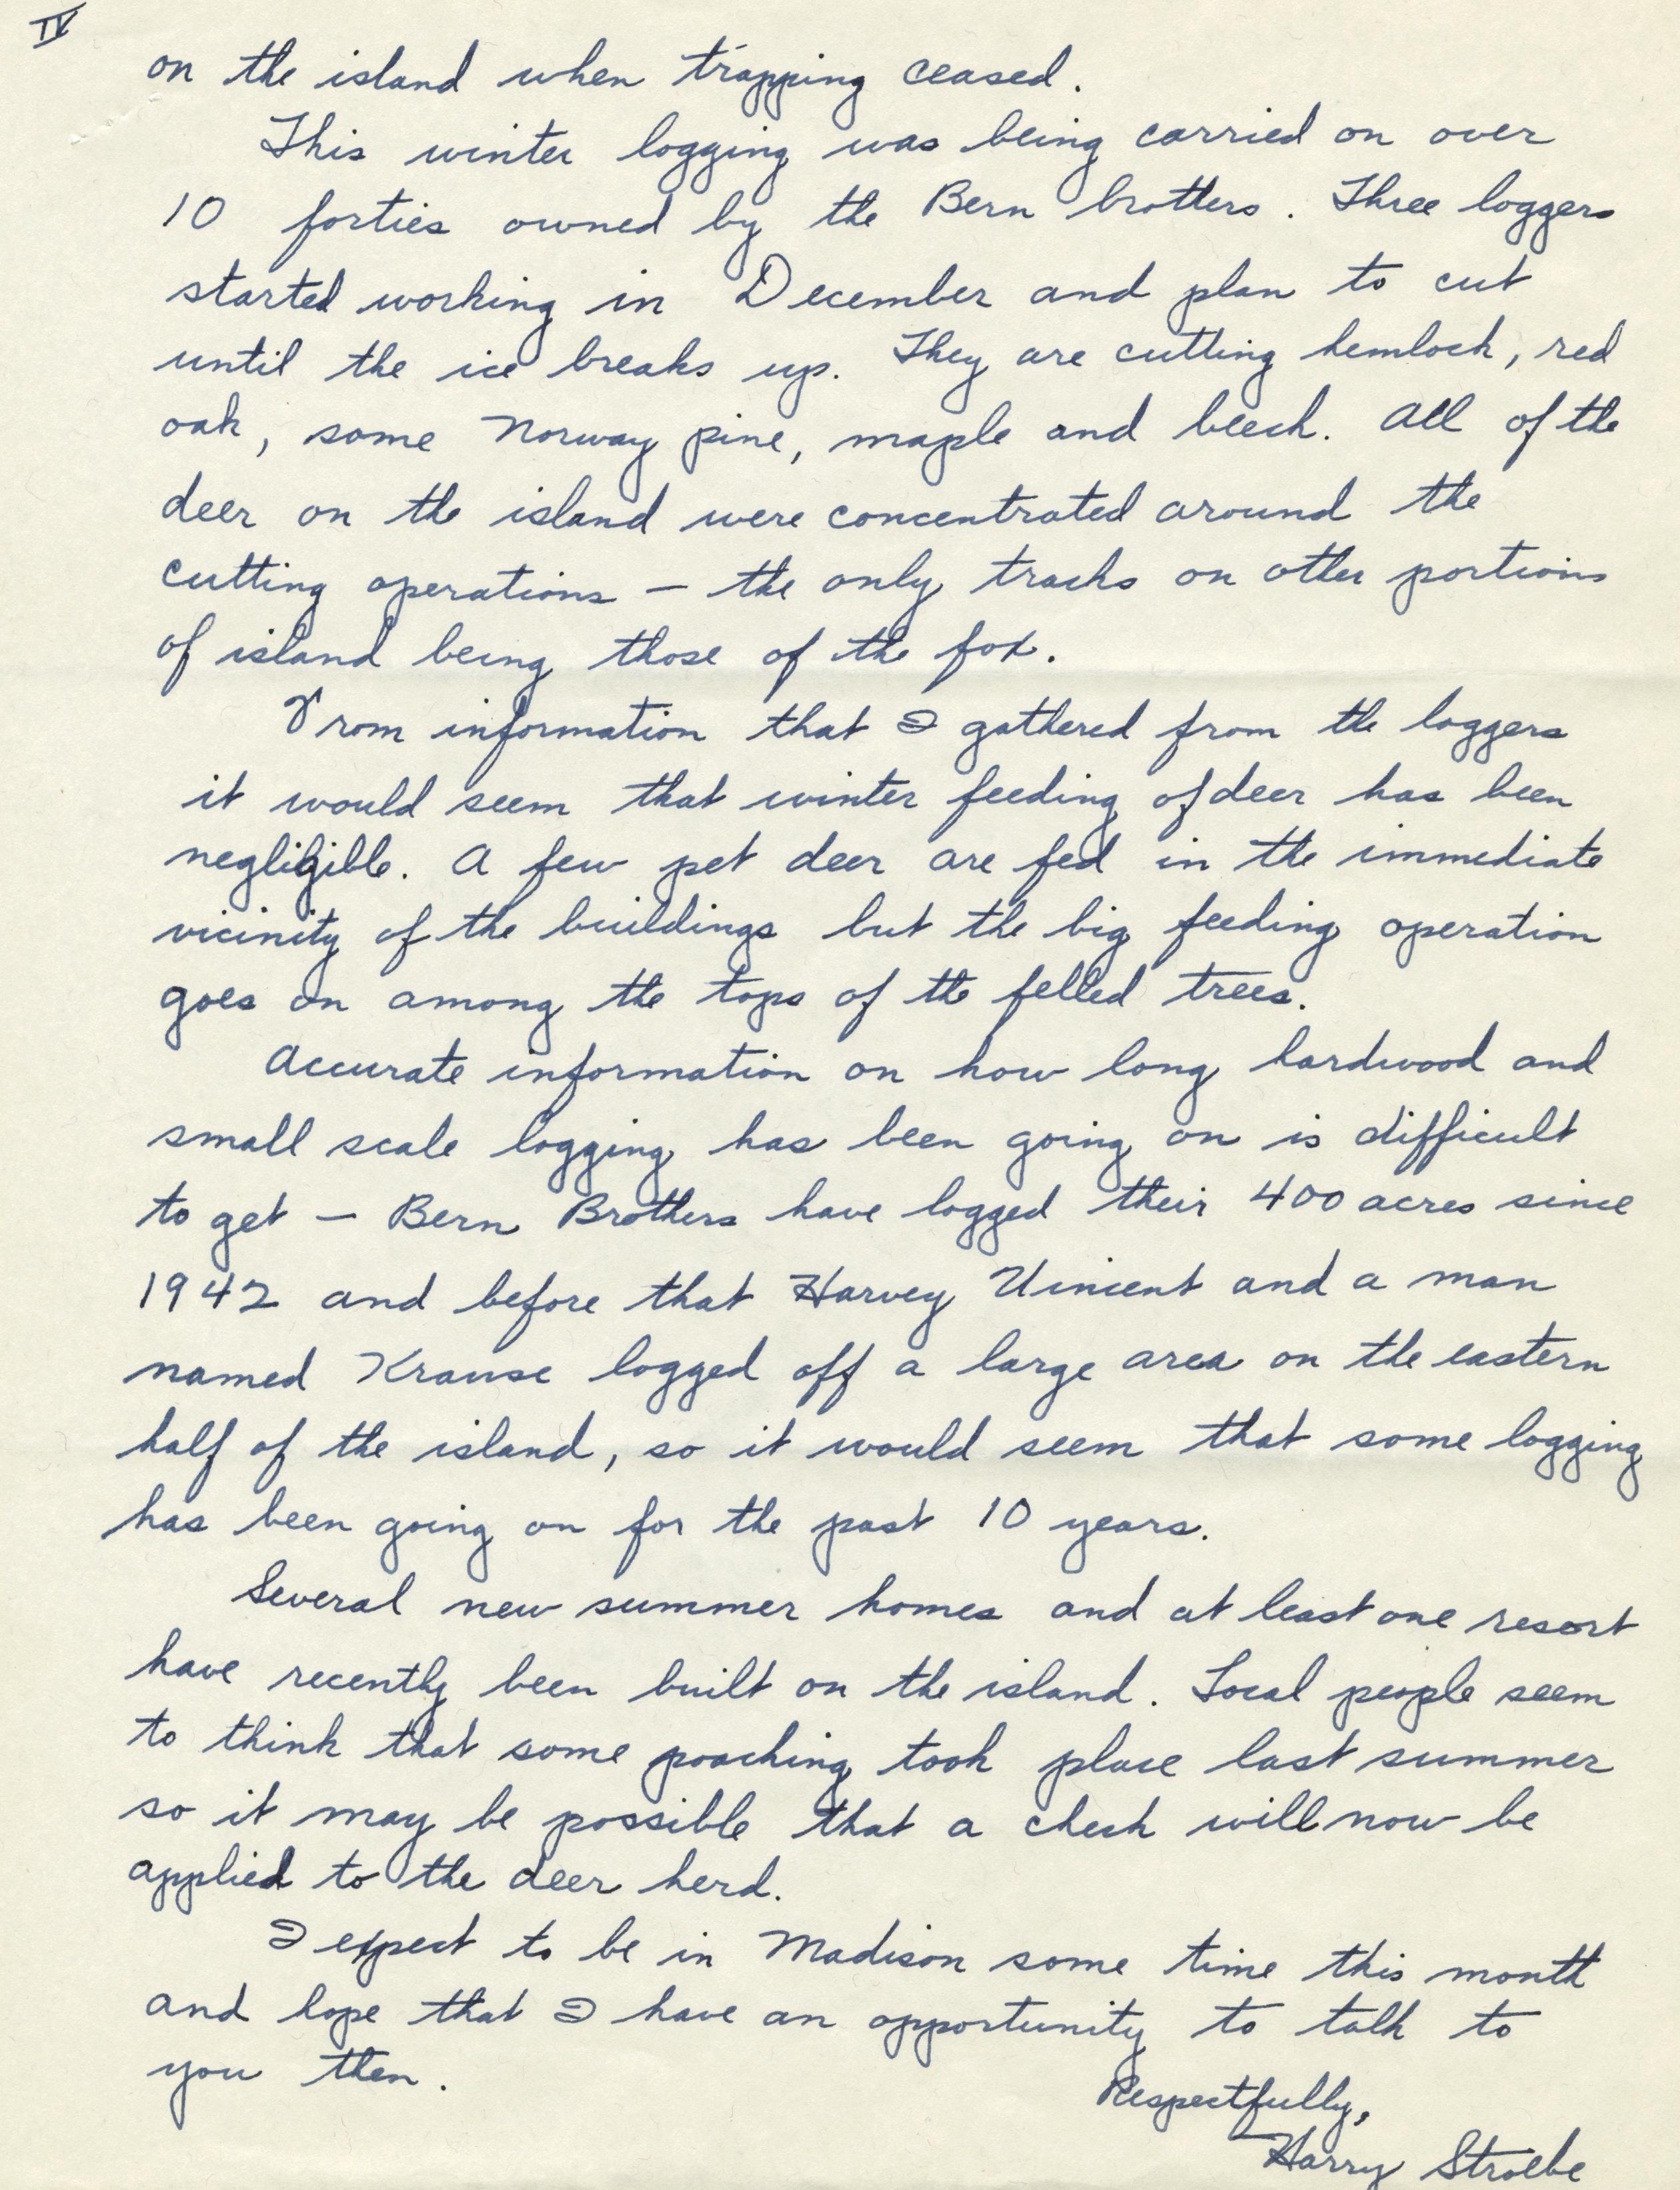 IV
on the island when trapping ceased.
This winter logging was being carried on over
10 forties owned by the Bern brothers. Three loggers
started working in December and plan to cut
until the ice breaks up. They are cutting hemlock, red
oak, some Norway pine, maple and beech. All of the
deer on the island were concentrated around the
cutting operations — the only tracks on other portions
of island being those of the fox.
From information that I gathered from the loggers
it would seem that winter feeding of deer has been
negligible. A few pet deer are fed in the immediate
vicinity of the buildings but the big feeding operation
goes on among the tops of the felled trees.
Accurate information on how long hardwood and
small scale logging has been going on is difficult
to get — Bern Brothers have logged their 400 acres since
1942 and before that Harvey Vincent and a man
named Krause logged off a large area on the eastern
half of the island, so it would seem that some logging
has been going on for the past 10 years.
Several new summer homes and at least one resort
have recently been built on the island. Local people seem
to think that some poaching took place last summer
so it may be possible that a check will now be
applied to the deer herd.
I expect to be in Madison some time this month
and hope that I have an opportunity to talk to
you then.
Respectfully,
Harry Stroebe